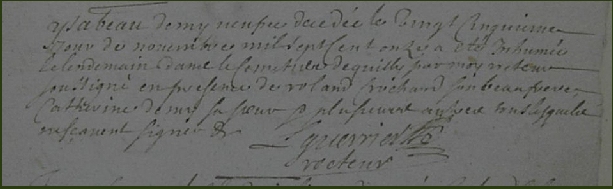 ysabeau demy neufve decedée le vingt cinquieme
jour de novembre mil sept cent onze a eté inhumée
le lendemain dans le Cimetiere de quilly par moy recteur
soussigné en presence de roland frichard son beau frere
Catherine demy sa sœur & plusieurs autres tous lesquels
ne scavent signer &
recteur